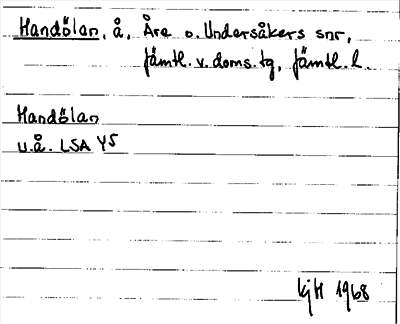 Handölan, å, Åre o. Undersåkers snr,
Jämtl. v. doms. tg, Jämtl. l.
Handölan
u.å. LSA Y5
KjH 1968